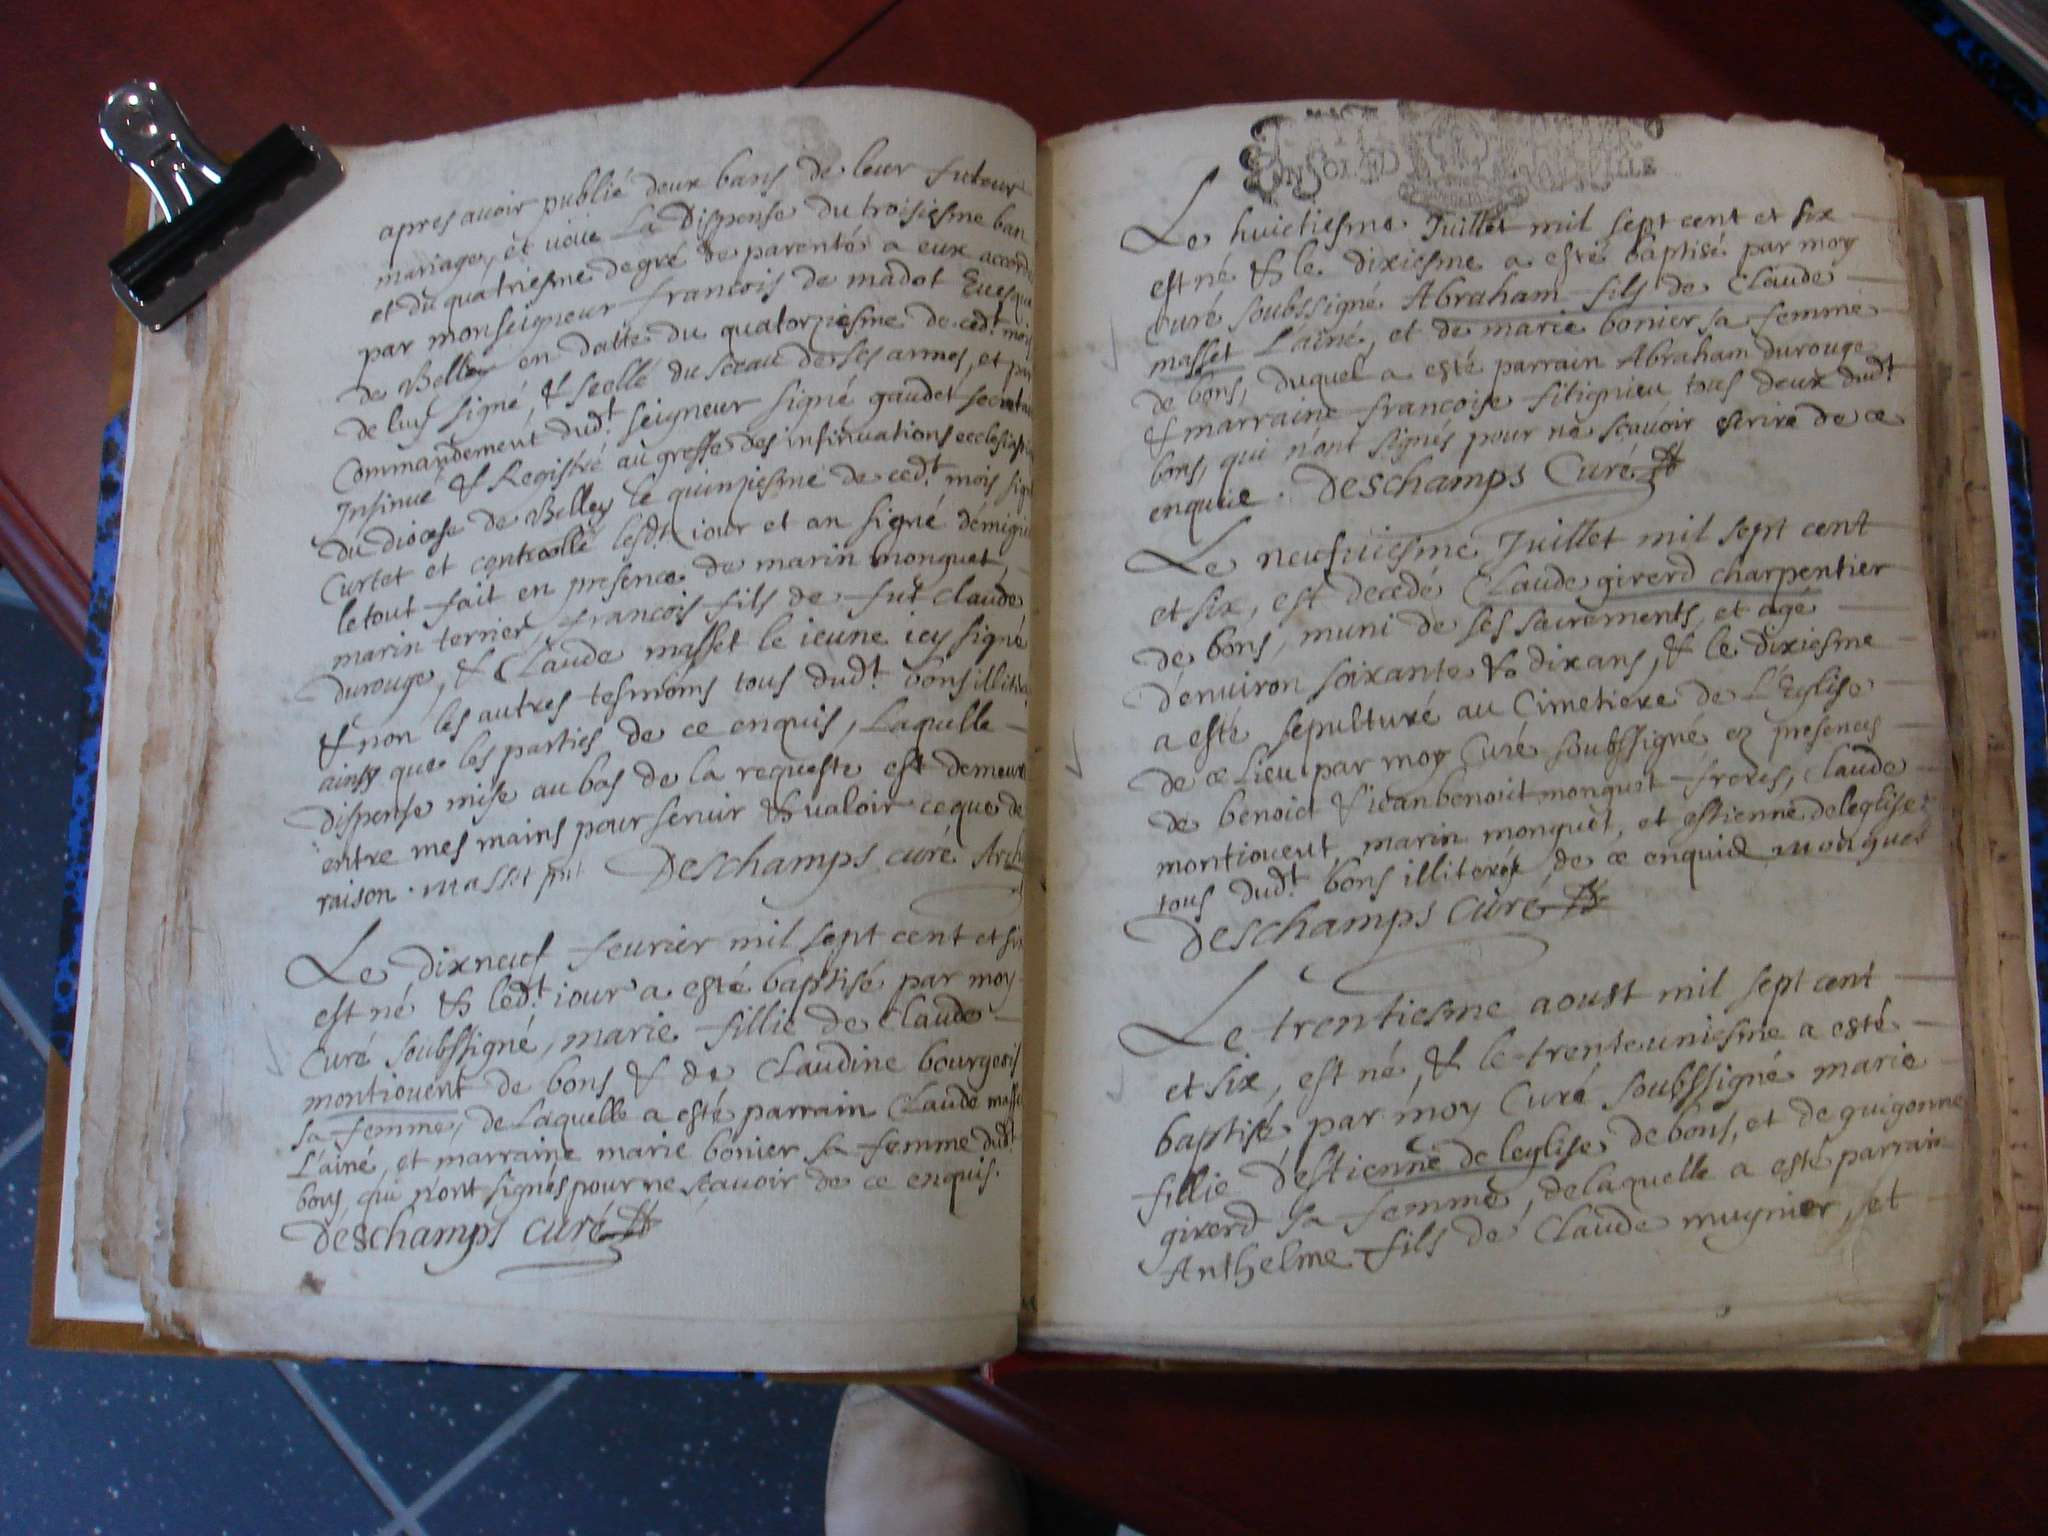 apres avoir publié deux bans de leur futeur
mariage, et veüe La Dispense du troisiesme ban
et du quatriesme degré de parenté a eux accordé
par monseigneur francois de madot Evesque
de Belley en datte du quatorziesme de ced.t mois
de luy signé, & seellé du sceau de ses armes, et par
Commandement dud.t seigneur signé gaudet secreta
Insinué & Registré au greffe des insinuations ecclesiasti
du diocese de Belley le quinziesme de ced.t mois sig
Curtet et controollé lesd.t iour et an signé démig
le tout fait en presence de marin monguet,
marin terrier, francois fils de fut Claude
Durouge, & Claude masset le ieune icy signé
& non les autres tesmoins tous dud.t bons illit
ainsy que les parties de ce enquis, Laquelle
dispense mise au bas de la requeste est demeuré
entre mes mains pour servir & valoir ce que de
raison. Masset Deschamps curé
Le dixneuf feurier mil sept cent et six
est né & led.t iour a esté baptisé par moy
Curé soubssigné, marie fillie de Claude
montiouent de bons & de Claudine bourgeois
sa femme, de laquelle a esté parrain Claude masse
L'ainé, et marraine marie bonier sa femme dud.t
bons, qui n'ont signés pour ne sçavoir de ce enquis.
Deschamps curé
Le huictiesme Juillet mil sept cent et six
est né & le dixiesme a esté baptisé par moy
Curé soubssigné Abraham fils de Claude
masset L'ainé, et de marie bonier sa femme
de bons, duquel a esté parrain Abraham durouge
& marraine francoise filignieu tous deux dud.t
bons, qui n'ont signés pour ne scavoir escrire de ce
enquis. Deschamps Curé
Le neufuiesme Juillet mil sept cent
et six, est decedé Claude girerd charpentier
de bons, muni de ses sacrements, et agé
d'enuiron soixante & dix ans, & le dixiesme
a esté sepulturé au Cimetiere de L'Eglise
de ce Lieu par moy Curé soubssigné ez presences
de benoict & iean benoict monguet freres, Claude
montiouent, marin monguet, et estienne deleglise
tous dud.t bons illiterés de ce enquis monguet
Deschamps curé
Le trentiesme aoust mil sept cent
et six, est né, & le trenteuniesme a esté
baptisé, par moy Curé soubssigné marie
fillie d'estienne de leglise de bons, et de guigonne
girerd sa femme, de laquelle a esté parrain
Anthelme fils de Claude mugnier, et